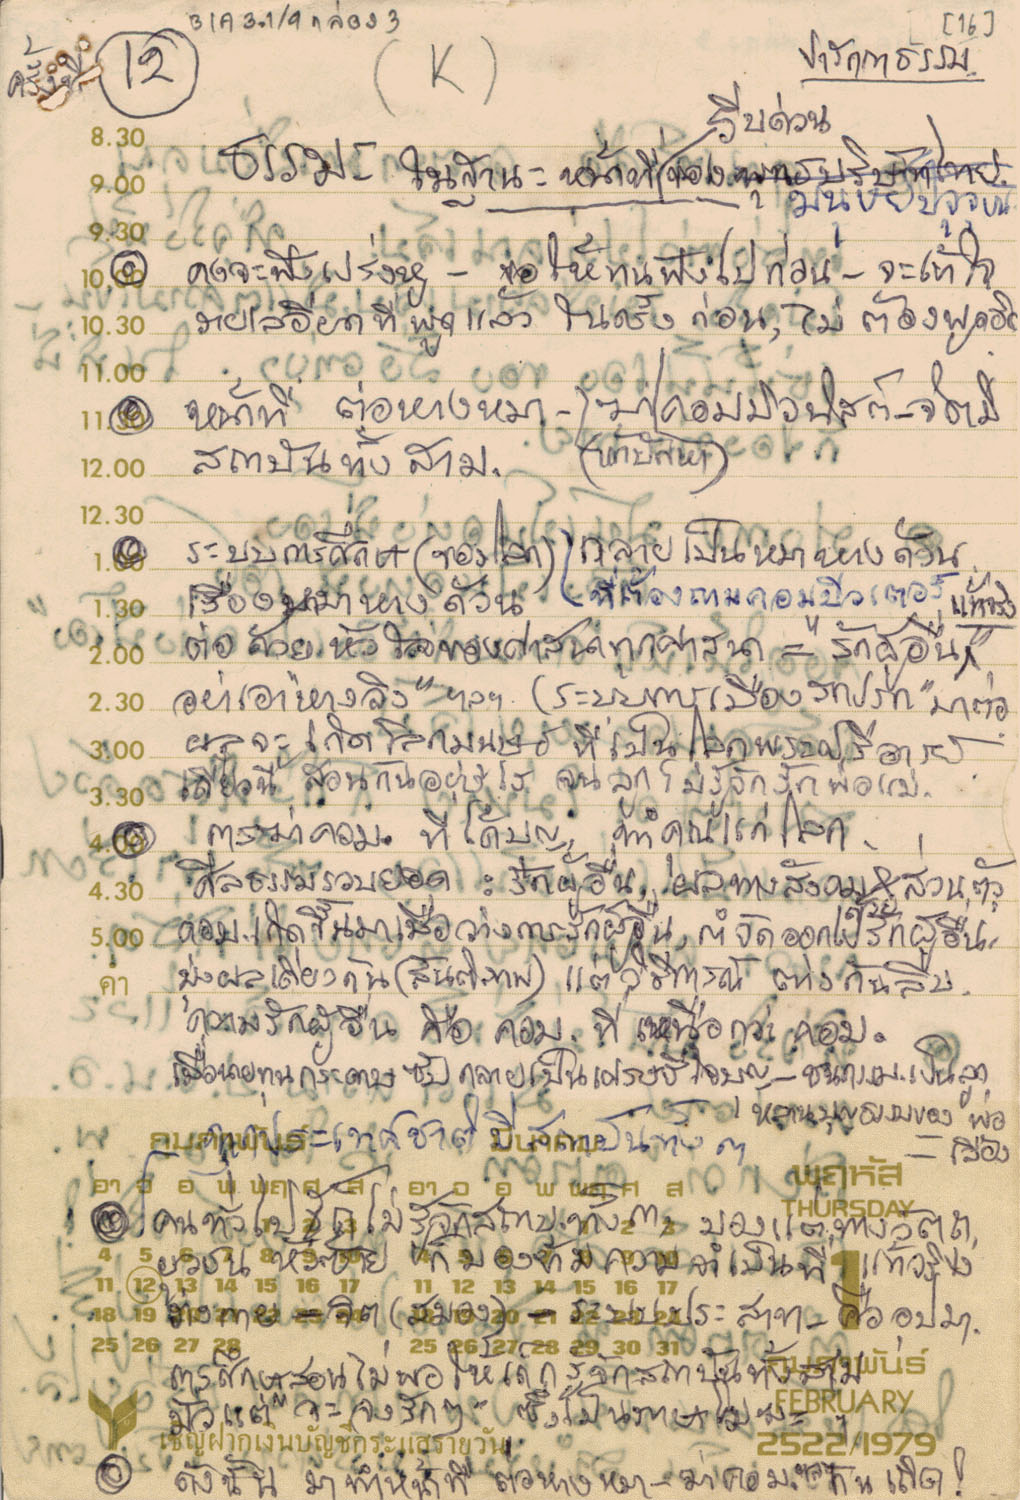 [16]
ครั้งที่ 12
(K)
ปาฐกถาธรรม
รีบด่วน
8.30
ธรรมะ ในฐานะ หน้าที่ ของ พุทธบริษัทไทย
9.00
มนุษย์ปัจจุบัน
9.30
10.00
คงจะฟังแปร่งหู – ขอให้ทนฟังไปก่อน – จะเข้าใจ
10.30
รายละเอียดที่พูดแล้ว ในครั้งก่อน, ไม่ต้องพูดอีก
11.00
11.30
หน้าที่ ต่อหางหมา – ฆ่าคอมมิวนิสต์ – จัดมี
12.00
สถาบันทั้งสาม. (ห้าปัญหา)
12.30
1.00
ระบบการศึกษา (ของโลก) กลายเป็นหมาหางด้วน
1.30
เรื่องหมาหางด้วน ที่ต้องถามคอมปิวเตอร์ แท้จริง
2.00
ต่อด้วยหัวใจของศาสนาทุกศาสนา = รักผู้อื่น
2.30
อย่าเอา "หางลิง" ฯลฯ (ระบบการเมืองสกปรก" มาต่อ
3.00
ผลจะเกิดโลกมนุษย์ ที่เป็นโลกพระศรีอารย์
3.30
เดี๋ยวนี้ สอนกันอยู่ จนลูกไม่รู้จักรักพ่อแม่.
4.00
การฆ่าคอม. ที่ได้บุญ, ทำคุณแก่โลก.
4.30
ศีลธรรมรวบยอด : รักผู้อื่น, ผลทางสังคม & ส่วนตัว
5.00
คอม.เกิดขึ้นมาเมื่อว่างการรักผู้อื่น, กำจัดออกไปด้วยรักผู้อื่น.
ค่ำ
มุ่งผลเดียวกัน (สันติภาพ) แต่วิธีการณ์ ต่างกันลิบ.
ความรักผู้อื่น คือ คอม. ที่ เหนือกว่า คอม.
เมื่อนายทุนกระดาษซับ กลายเป็นเศรษฐีใจบุญ – ชนกรรม.เป็นลูก
หลานบุญธรรมของ พ่อ
= เมือง
ทุกประเทศชาติ มีสถาบันทั้ง ๓
กุมภาพันธ์
มีนาคม
อา จ อ พ พฤ ศ ส
อา จ อ พ พฤ ศ ส
พฤหัส
THURSDAY
1
คนทั่วไปรู้จักไม่รู้จักสถาบ.ทั้ง ๓. มองแต่ทางวัตถุ,
ยุวชน หัวซ้าย ก็มองข้ามความจำเป็นที่แท้จริง
ร่างกาย – จิต (สมอง) – ระบบประสาท – คืออุปมา.
4 5 6 7 8 9 10
11 12 13 14 15 16 17
11 12 13 14 15 16 17
18 19 20 21 22 23 24
18 19 20 21 22 23 24
25 26 27 28
25 26 27 28 29 30 31
การศึกษาสอนไม่พอให้เด็กรู้จักสถาบันทั้งสาม
กุมภาพันธ์
FEBRUARY
มัวแต่ "จะจงรักๆ"
2522/1979
เชิญฝากเงินบัญชีกระแสรายวัน
ดังนั้น มาทำหน้าที่ ต่อหางหมา – ฆ่าคอม. กันเถิด!